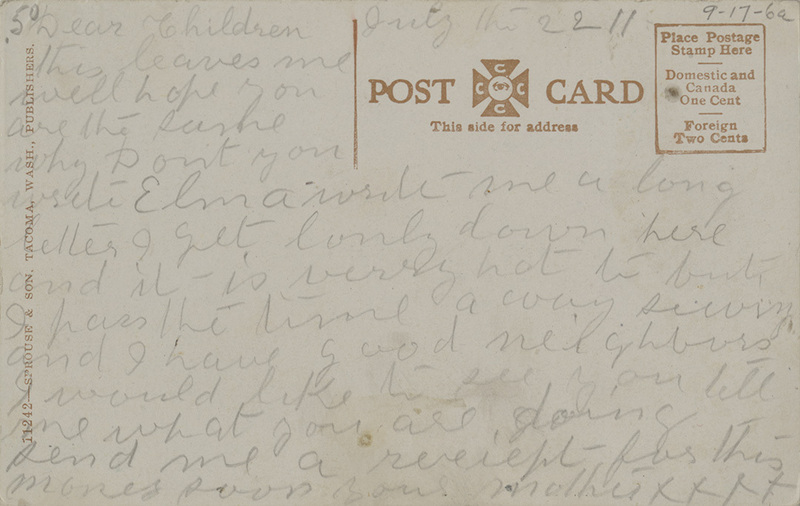 50
Dear Children July the 22 11
this leaves me
well hope you
are the same
why Dont you
write Elma write me a long
letter I get lonly down here
and it is verry hot to but
I pass the time away sewing
and I have good neighbours
I would like to see you tell
me what you are doing
send me a reciept for this
money soon your mother xxxxx
9-17-6a
POST CARD
This side for address
Place Postage
Stamp Here
Domestic and
Canada
One Cent
Foreign
Two Cents
C
C C
C
11242—SPROUSE & SON, TACOMA, WASH., PUBLISHERS.